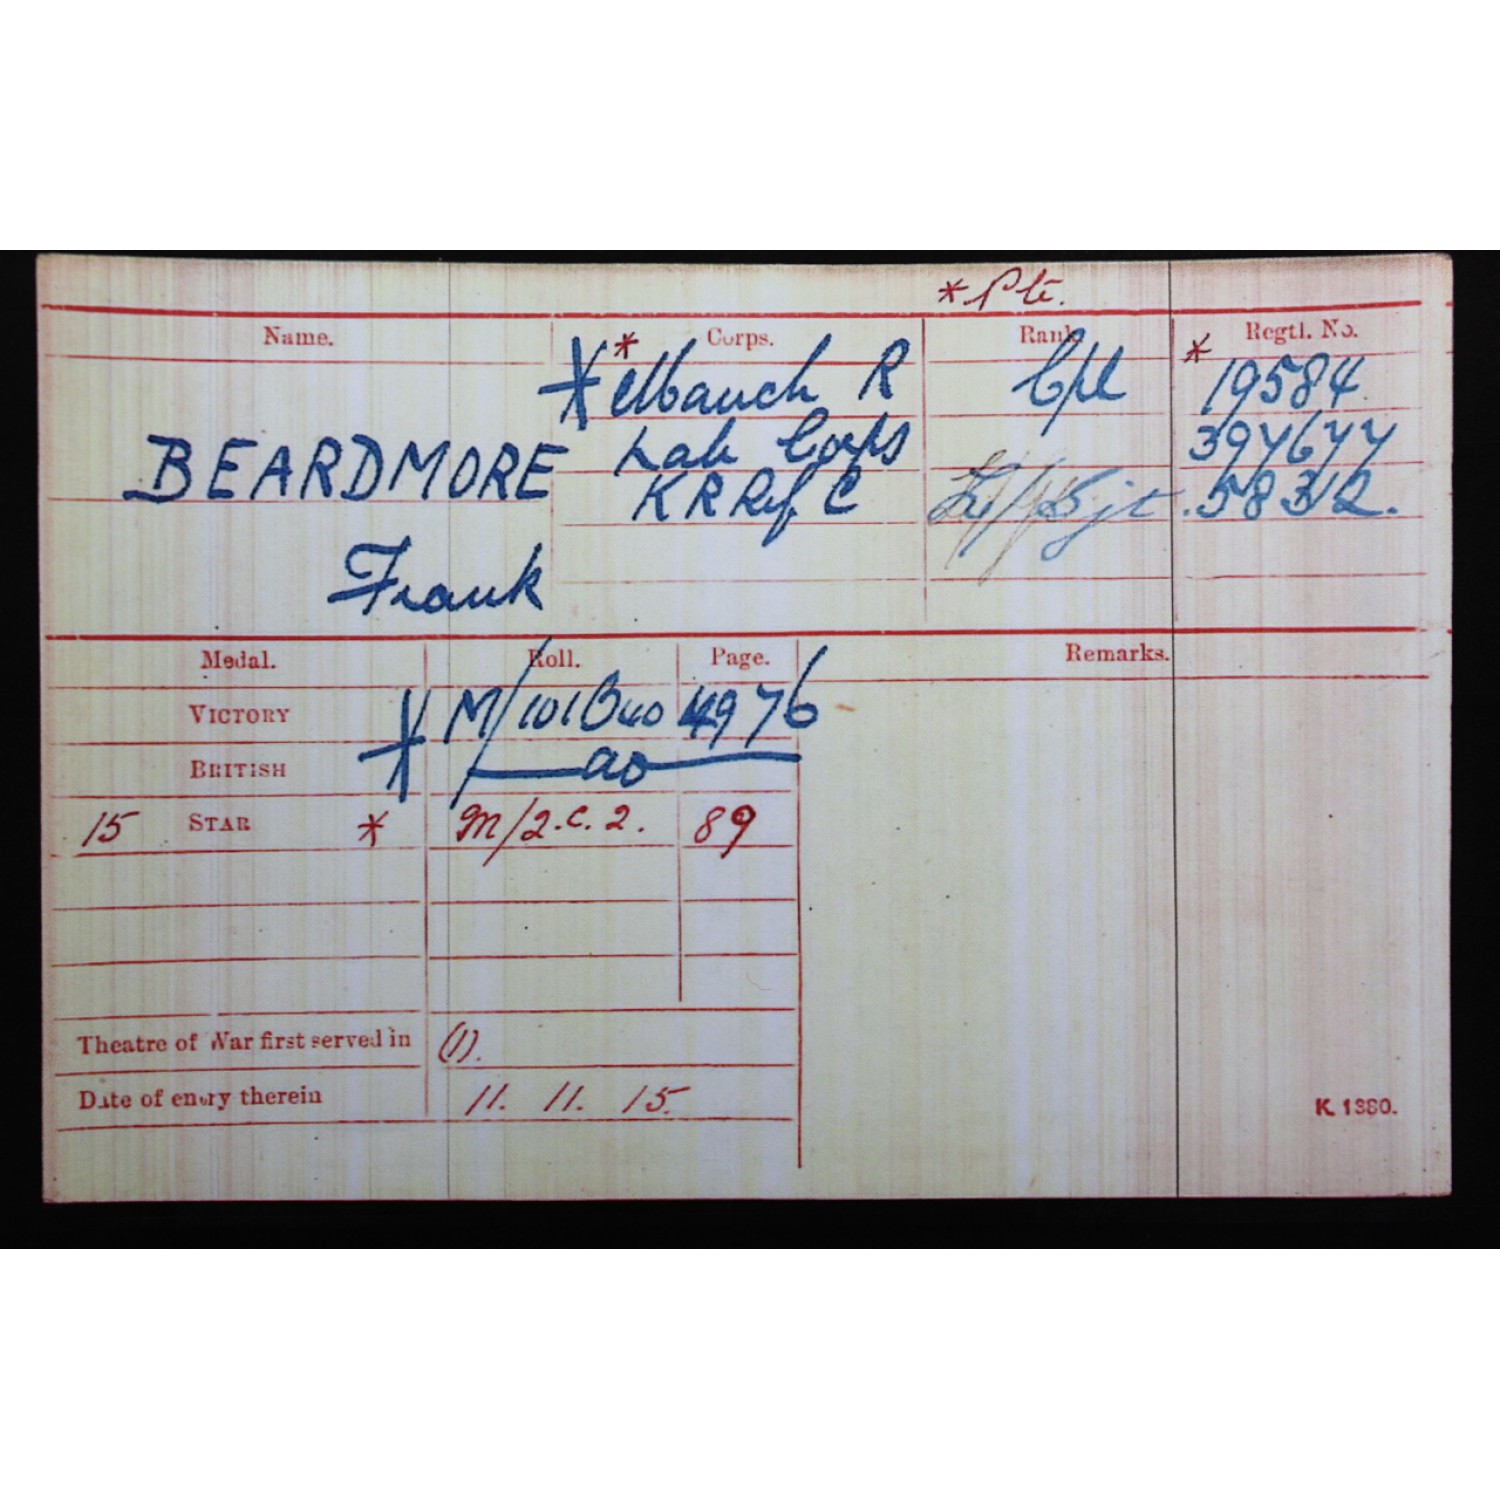 * Pte.
Name. Corps. Rank Regtl. No.
* * Manch R Cpl * 19584
BEARDMORE Lab Corps 397677
K R Rif C Sjt 58312.
Frank
Medal. Roll. Page. Remarks.
VICTORY * M/101B40 4976
BRITISH do
15 STAR * M/2.C.2. 89
Theatre of War first served in (1).
Date of entry therein 11. 11. 15.
K. 1380.